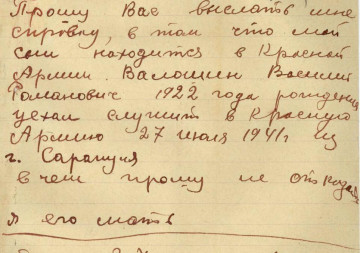 Прошу Вас выслать мне
справку, в том что мой
сын находится в Красной
Армии. Валошин Василий
Романович 1922 года рождения
уехал служит в Красную
Армию 27 июля 1941г из
г. Сарапуля
в чем прошу не отказать
я его мать